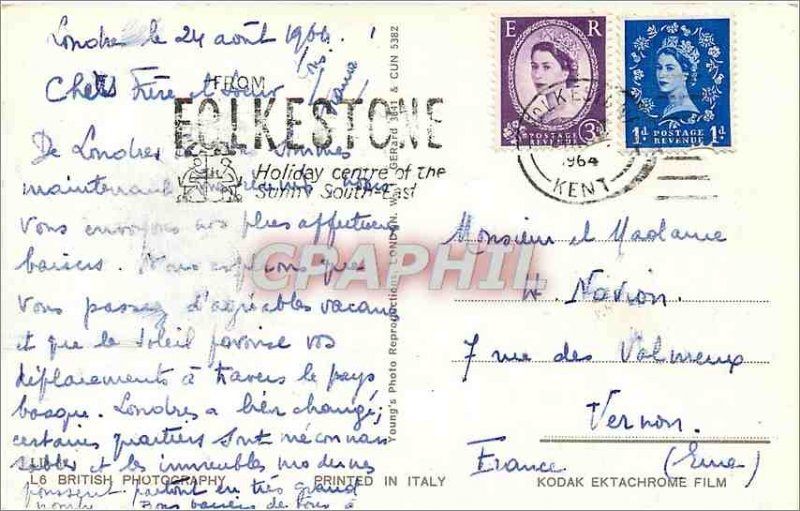 Londres le 24 août 1964.
Chers Frère et soeur
FROM
FOLKESTONE
Holiday centre of the
Sunny South-East
De Londres où nous sommes
maintenant nous
vous envoyons nos plus affectueux
baisers. Nous espérons que
vous passez d'agréables vacances
et que le soleil favorise vos
déplacements à travers le pays
basque. Londres a bien changé;
certains quartiers sont méconnais
sables et les immeubles modernes
poussent partout en très grand
nombre. Bons baisers de tous à
L6 BRITISH PHOTOGRAPHY
PRINTED IN ITALY
KODAK EKTACHROME FILM
Young's Photo Reproductions, LONDON. W.1. GERard 3841 & CUN 5382
E R
POSTAGE
REVENUE
3d
1d POSTAGE REVENUE 1d
FOLKESTONE
1964
KENT
CPAPHIL
Monsieur et Madame
Navion.
7 rue des Valmeux
Vernon.
France (Eure)